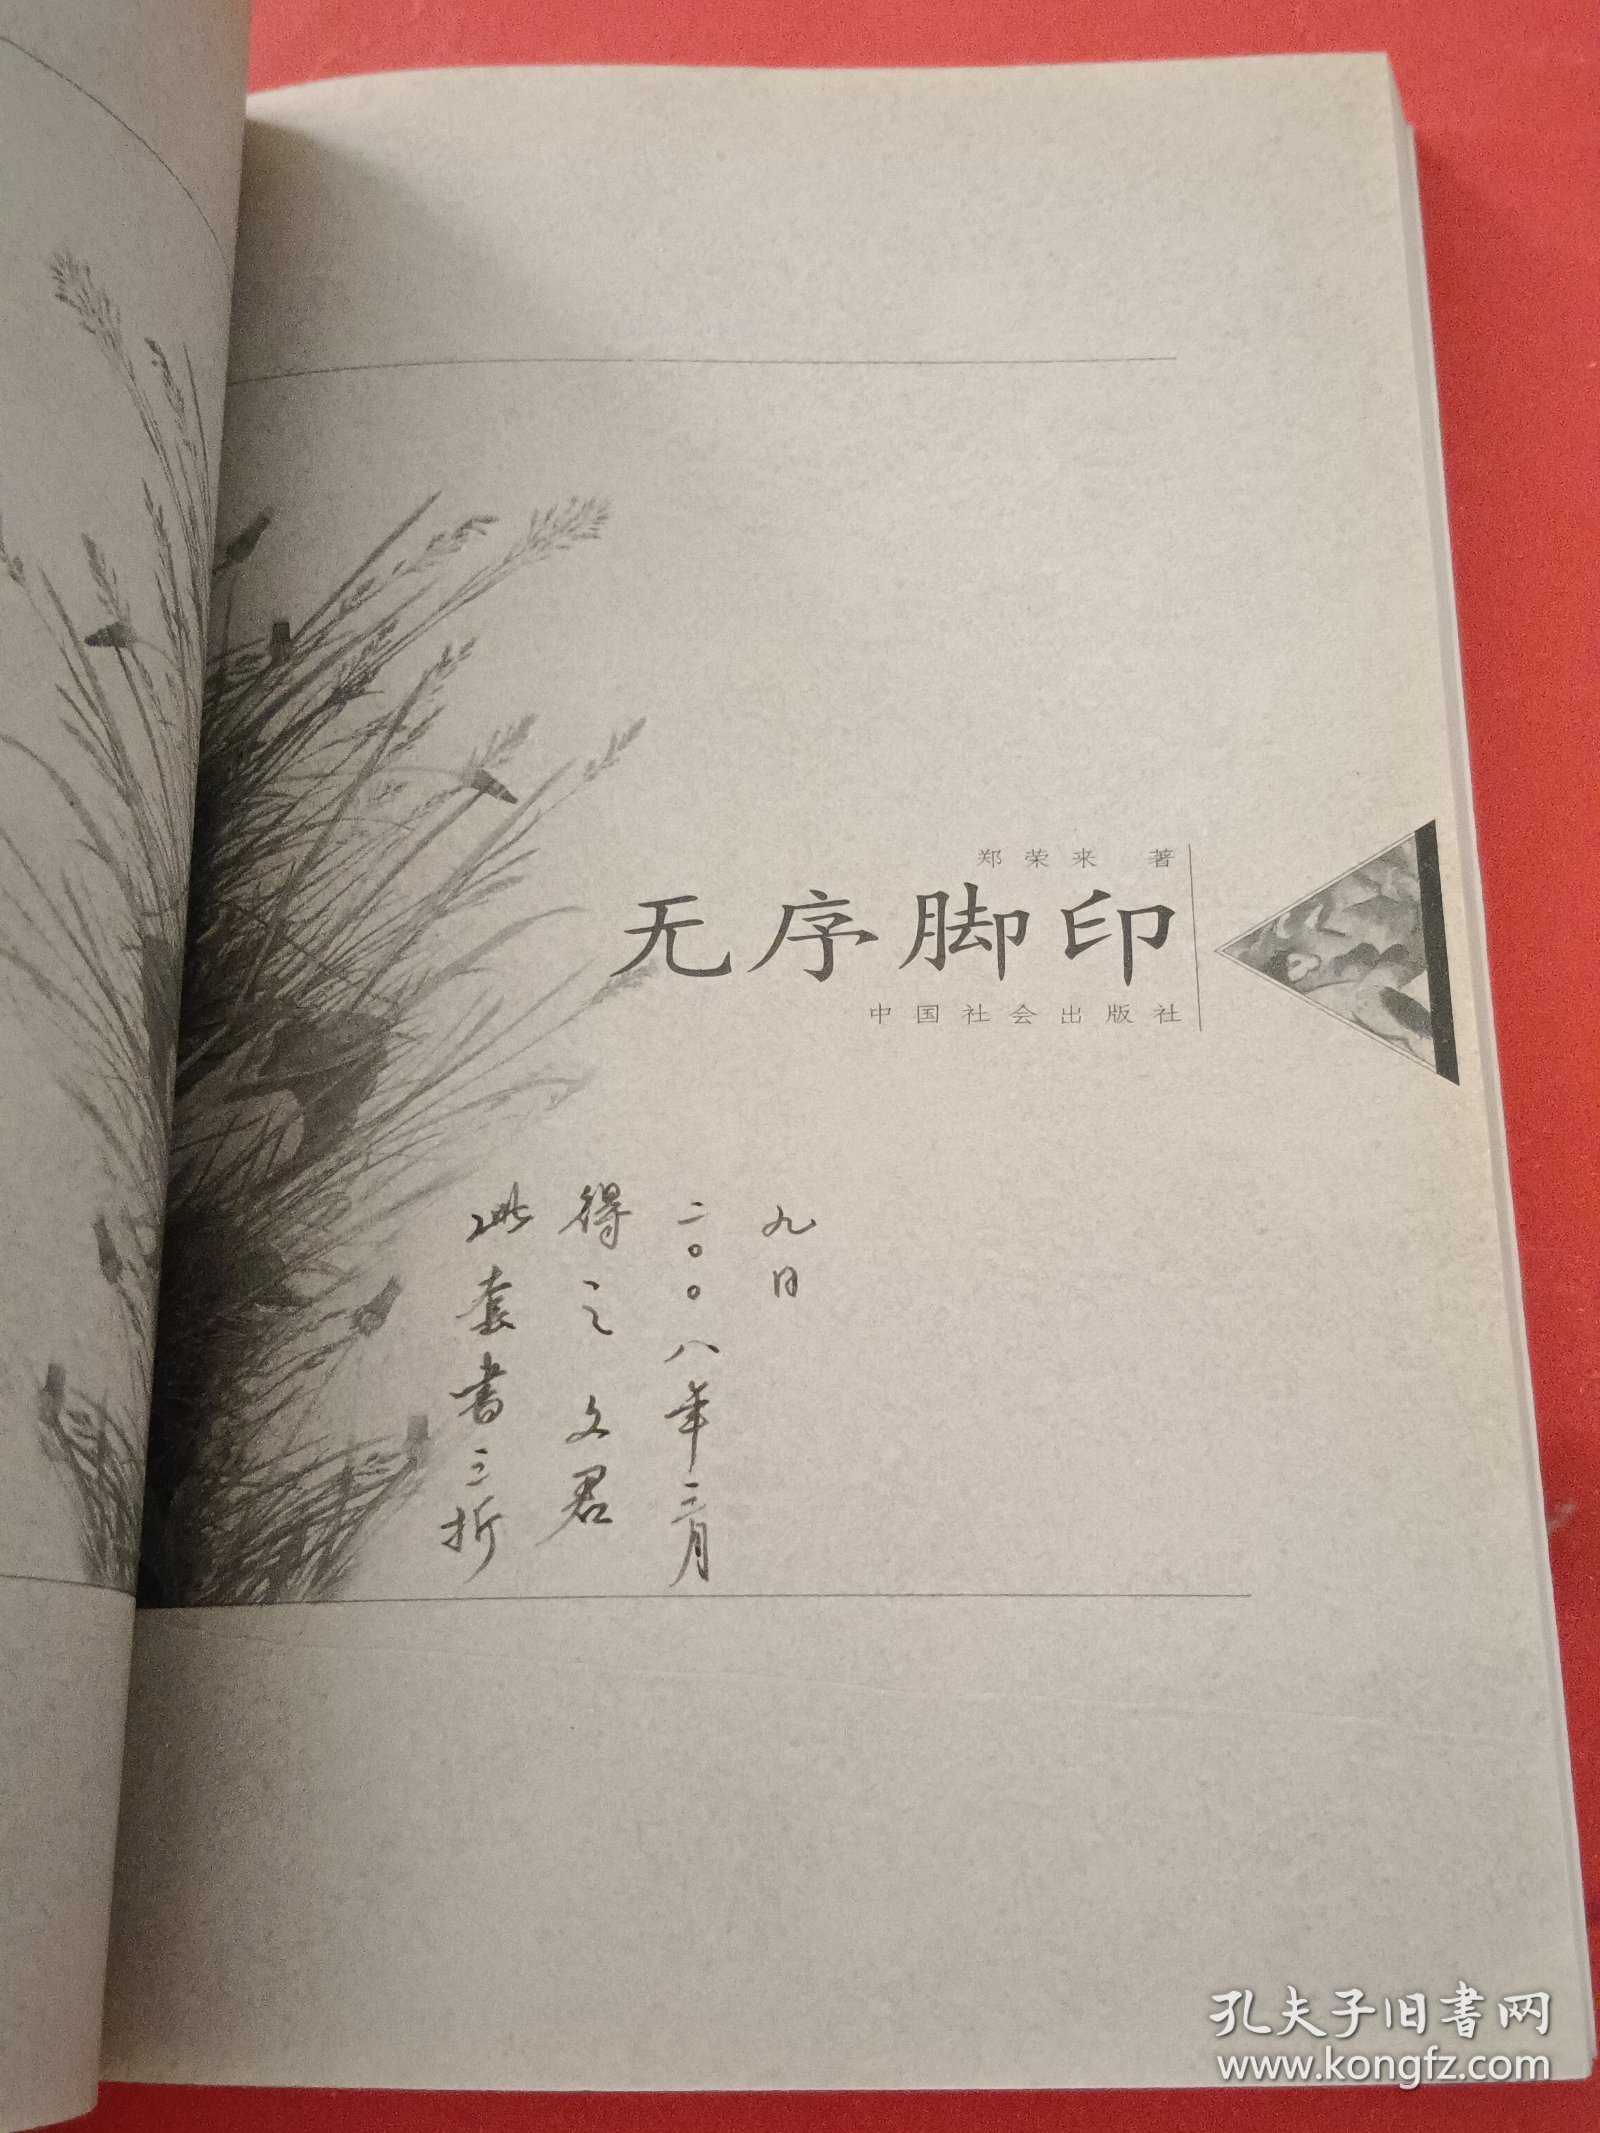 郑荣来 著
无序脚印
中国社会出版社
此套书三折
得之 文君
二〇〇八年三月
九日
孔夫子旧书网
www.kongfz.com